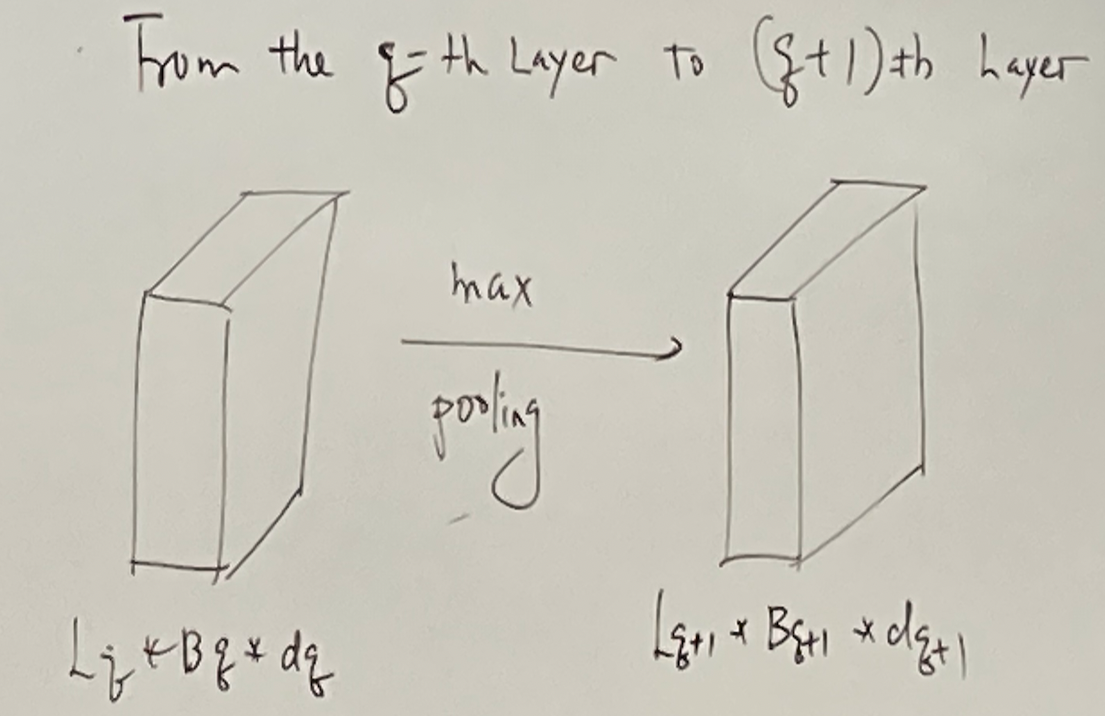 From the q-th Layer To (q+1)th Layer
max
pooling
Lq * Bq * dq
Lq+1 * Bq+1 * dq+1